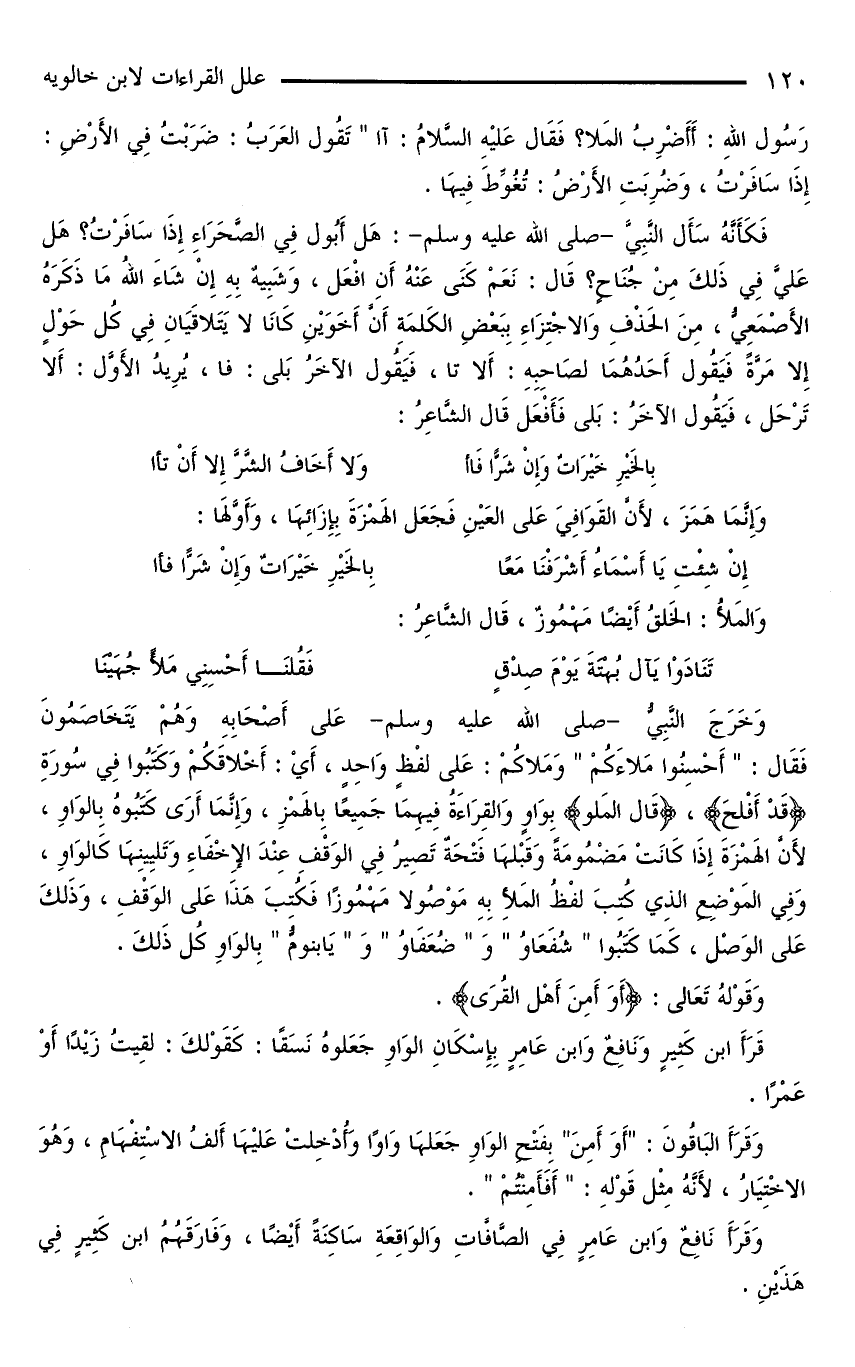 ١٢٠ علل القراءات لابن خالويه
رَسُول اللهِ : أَأَضْرِبُ المَلا؟ فَقَال عَليْهِ السَّلامُ : آا " تَقُول العَرَبُ : ضَرَبْتُ فِي الأَرْضِ :
إِذَا سَافَرْتُ ، وَضُرِبَتِ الأَرْضُ : تُغُوِّطَ فِيهَا .
فَكَأَنَّهُ سَأَل النَّبِيَّ –صلى الله عليه وسلم– : هَل أَبُول فِي الصَّحَرَاءِ إِذَا سَافَرْتُ؟ هَل
عَليَّ فِي ذَلكَ مِنْ جُنَاحٍ؟ قَال : نَعَمْ كَنَى عَنْهُ أَنِ افْعَل ، وَشَبِيهٌ بِهِ إِنْ شَاءَ اللهُ مَا ذَكَرَهُ
الأَصْمَعِيُّ ، مِنَ الحَذْفِ وَالاجْتِزَاءِ بِبَعْضِ الكَلمَةِ أَنَّ أَخَوَيْنِ كَانَا لا يَتَلاقَيَانِ فِي كُل حَوْلٍ
إِلا مَرَّةً فَيَقُول أَحَدُهُمَا لصَاحِبِهِ : أَلا تا ، فَيَقُول الآخَرُ بَلى : فا ، يُرِيدُ الأَوَّل : أَلا
تَرْحَل ، فَيَقُول الآخَرُ : بَلى فَأَفْعَل قَال الشَّاعِرُ :
بِالخَيْرِ خَيْرَاتٌ وَإِنْ شَرًّا فَاأ وَلا أَخَافُ الشَّرَّ إِلا أَنْ تاأ
وَإِنَّمَا هَمَزَ ، لأَنَّ القَوَافِيَ عَلى العَيْنِ فَجَعَل الهَمْزَةَ بِإِزَائِهَا ، وَأَوَّلهَا :
إِنْ شِئْتِ يَا أَسْمَاءُ أَشْرَفْنَا مَعًا بِالخَيْرِ خَيْرَاتٌ وَإِنْ شَرًّا فاأ
وَالمَلأُ : الخَلقُ أَيْضًا مَهْمُوزٌ ، قَال الشَّاعِرُ :
تَنَادَوْا يَآل بُهْتَةَ يَوْمَ صِدْقٍ فَقُلنَـــا أَحْسِنِي مَلأً جُهَيْنَا
وَخَرَجَ النَّبِيُّ –صلى الله عليه وسلم– عَلى أَصْحَابِهِ وَهُمْ يَتَخَاصَمُونَ
فَقَال : " أَحْسِنُوا مَلاءَكُمْ " وَمَلاكُمْ : عَلى لفْظٍ وَاحِدٍ ، أَيْ : أَخْلاقَكُمْ وَكَتَبُوا فِي سُورَةِ
﴿قَدْ أَفْلحَ﴾ ، ﴿قَال المَلو﴾ بِوَاوٍ وَالقِرَاءَةُ فِيهِمَا جَمِيعًا بِالهَمْزِ ، وَإِنَّمَا أَرَى كَتَبُوهُ بِالوَاوِ ،
لأَنَّ الهَمْزَةَ إِذَا كَانَتْ مَضْمُومَةً وَقَبْلهَا فَتْحَةٌ تَصِيرُ فِي الوَقْفِ عِنْدَ الإِخْفَاءِ وَتَليِينِهَا كَالوَاوِ ،
وَفِي المَوْضِعِ الذِي كُتِبَ لفْظُ المَلأِ بِهِ مَوْصُولا مَهْمُوزًا فَكُتِبَ هَذَا عَلى الوَقْفِ ، وَذَلكَ
عَلى الوَصْل ، كَمَا كَتَبُوا " شُفَعَاوُ " وَ " ضُعَفَاوُ " وَ " يَابنومُّ " بِالوَاوِ كُل ذَلكَ .
وَقَوْلهُ تَعَالى : ﴿أَوَ أَمِنَ أَهْل القُرَى﴾ .
قَرَأَ ابن كَثِيرٍ وَنَافِعٌ وَابن عَامِرٍ بِإِسْكَانِ الوَاوِ جَعَلوهُ نَسَقًا : كَقَوْلكَ : لقِيتُ زَيْدًا أَوْ
عَمْرًا .
وَقَرَأَ البَاقُونَ : "أَوَ أَمِنَ" بِفَتْحِ الوَاوِ جَعَلهَا وَاوًا وَأُدْخِلتْ عَليْهَا أَلفُ الاسْتِفْهَامِ ، وَهُوَ
الاخْتِيَارُ ، لأَنَّهُ مِثْل قَوْلهِ : " أَفَأَمِنْتُمْ " .
وَقَرَأَ نَافِعٌ وَابن عَامِرٍ فِي الصَّافَّاتِ وَالوَاقِعَةِ سَاكِنَةً أَيْضًا ، وَفَارَقَهُمُ ابن كَثِيرٍ فِي
هَذَيْنِ .